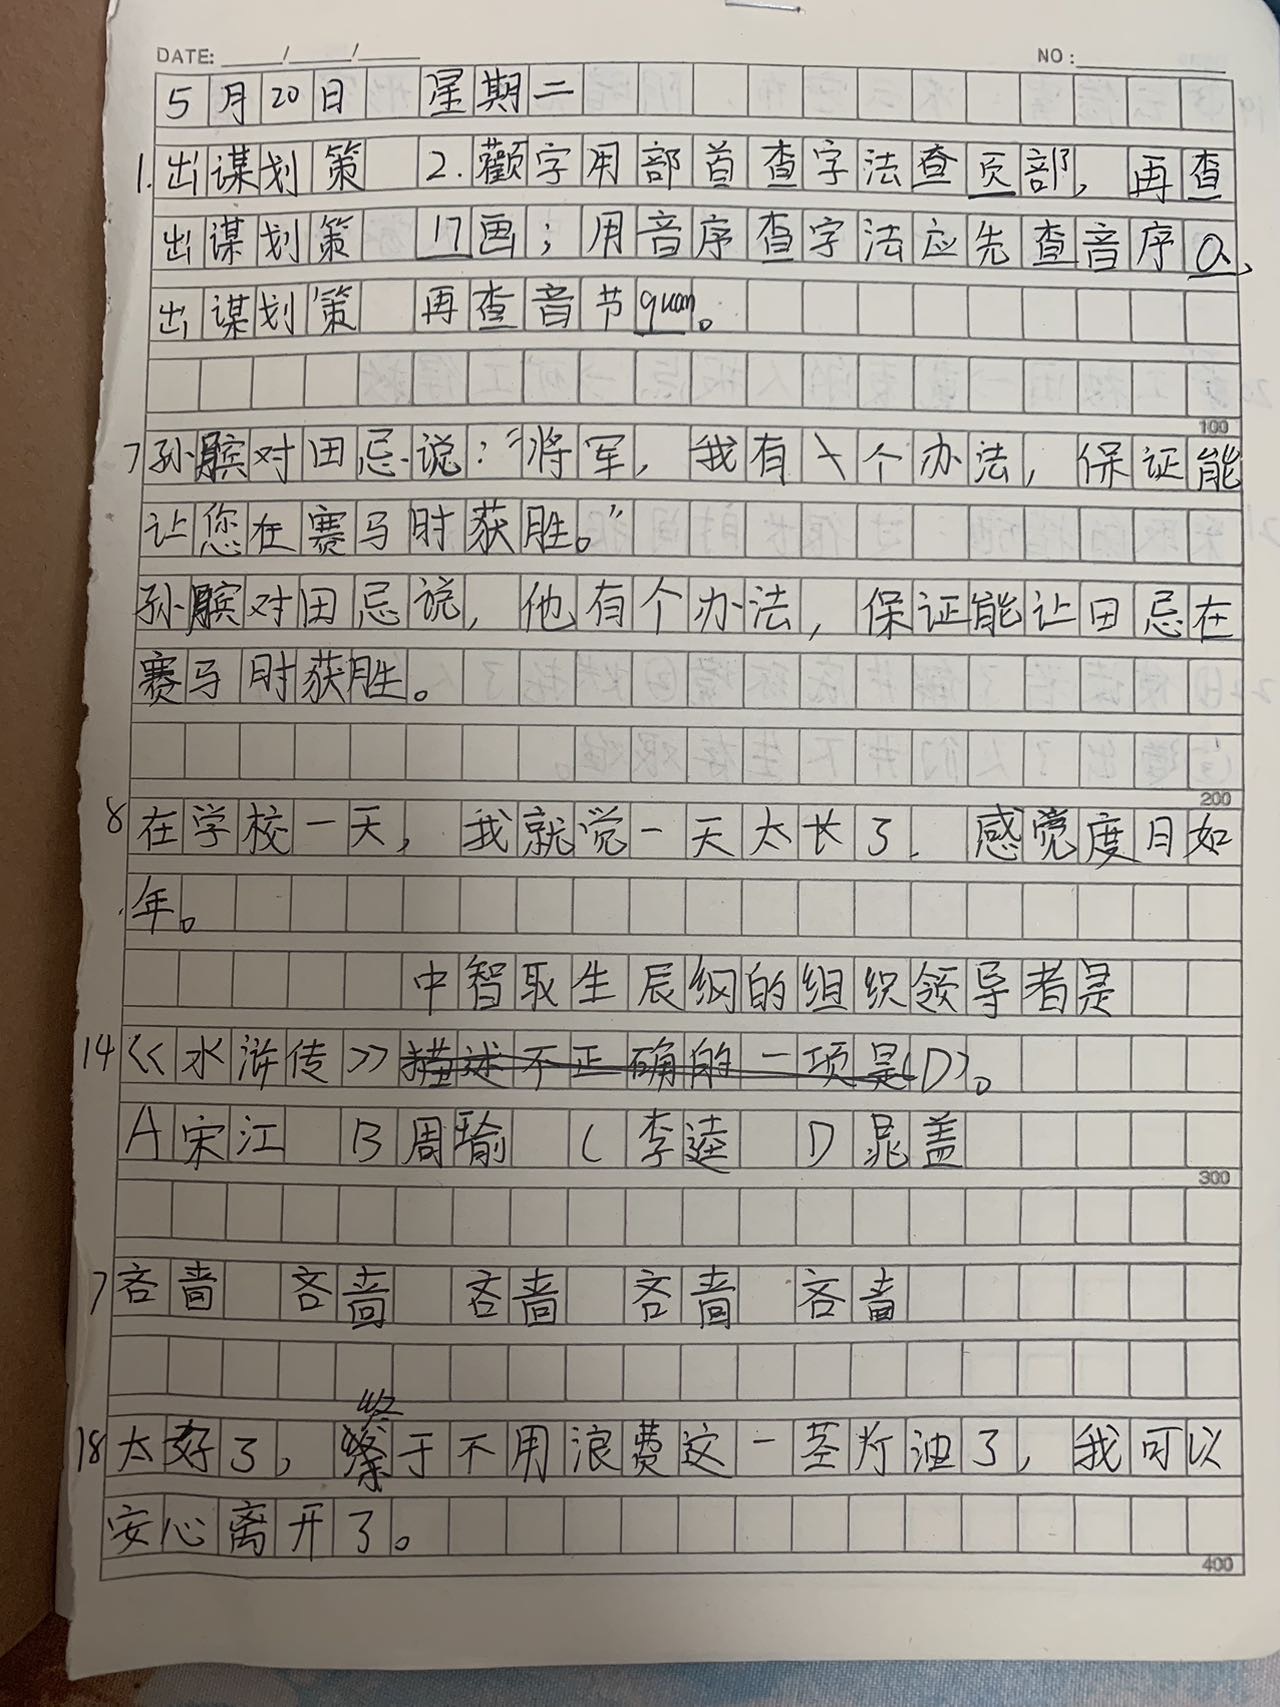 DATE: ___/___/___ NO:___
5月20日 星期二
1.出谋划策 2.颧字用部首查字法查页部,再查
出谋划策 17画;用音序查字法应先查音序Q,
出谋划策 再查音节quan。
100
7孙膑对田忌说:“将军,我有一个办法,保证能
让您在赛马时获胜。”
孙膑对田忌说,他有个办法,保证能让田忌在
赛马时获胜。
200
8在学校一天,我就觉一天太长了.感觉度日如
年。
中智取生辰纲的组织领导者是
14《水浒传》描述不正确的一项是(D)。
A宋江 B周瑜 C李逵 D晁盖
300
7吝啬 吝啬 吝啬 吝啬 吝啬
终
18太好了,于不用浪费这一茎灯油了,我可以
安心离开了。
400